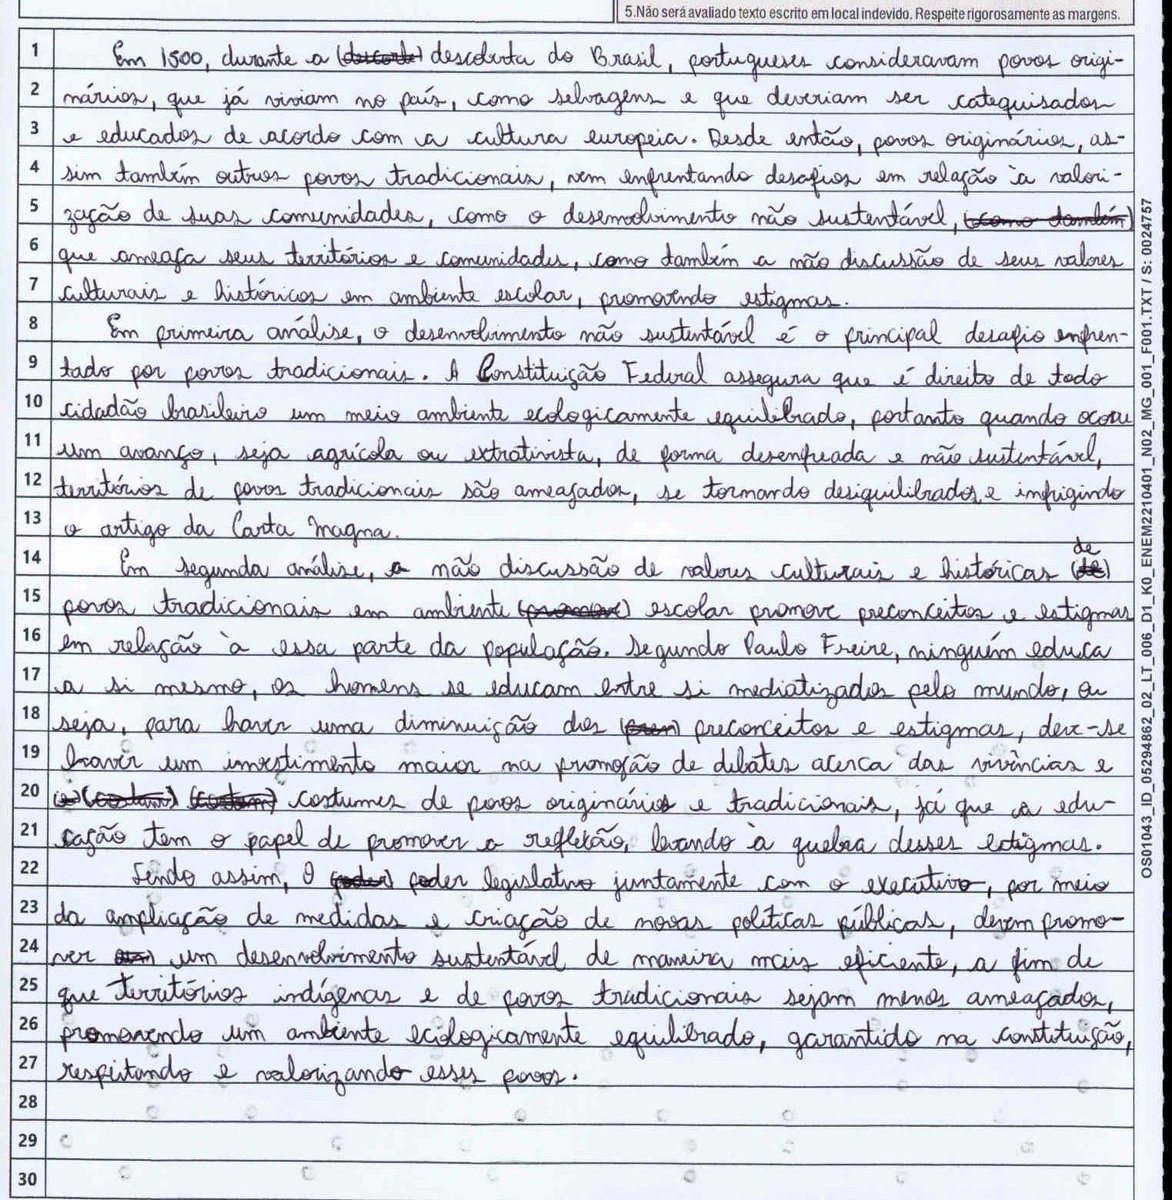 5.Não será avaliado texto escrito em local indevido. Respeite rigorosamente as margens.
1 Em 1500, durante a (descorte) descoberta do Brasil, portugueses consideravam povos origi-
2 nários, que já viviam no país, como selvagens e que deveriam ser catequisados
3 e educados de acordo com a cultura europeia. Desde então, povos originários, as-
4 sim também outros povos tradicionais, vem enfrentando desafios em relação à valori-
5 zação de suas comunidades, como o desenvolvimento não sustentável, (como também)
6 que ameaça seus territórios e comunidades, como também a não discussão de seus valores
7 culturais e históricos em ambiente escolar, promovendo estigmas.
8 Em primeira análise, o desenvolvimento não sustentável é o principal desafio enfren-
9 tado por povos tradicionais. A Constituição Federal assegura que é direito de todo
10 cidadão brasileiro um meio ambiente ecologicamente equilibrado, portanto quando ocorre
11 um avanço, seja agrícola ou extrativista, de forma desenfreada e não sustentável,
12 territórios de povos tradicionais são ameaçados, se tornando desiquilibrados e infrigindo
13 o artigo da Carta Magna.
14 Em segunda análise, a não discussão de valores culturais e históricas (de) de
15 povos tradicionais em ambiente (promove) escolar promove preconceitos e estigmas
16 em relação à essa parte da população. Segundo Paulo Freire, ninguém educa
17 a si mesmo, os homens se educam entre si mediatizados pelo mundo, ou
18 seja, para haver uma diminuição dos (pren) preconceitos e estigmas, deve-se
19 haver um investimento maior na promoção de debates acerca das vivências e
20 (e) (costum) (costum) costumes de povos originários e tradicionais, já que a edu-
21 cação tem o papel de promover a reflexão, levando à quebra desses estigmas.
22 Sendo assim, O (poder) poder legislativo juntamente com o executivo, por meio
23 da ampliação de medidas e criação de novas políticas públicas, devem promo-
24 ver um desenvolvimento sustentável de maneira mais eficiente, a fim de
25 que territórios indígenas e de povos tradicionais sejam menos ameaçados,
26 promovendo um ambiente ecologicamente equilibrado, garantido na constituição,
27 respeitando e valorizando esses povos.
28
29
30
OS01043_ID_05294862_02_LT_0006_D1_K0_ENEM2210401_N02_MG_001_F001.TXT / S: 0024757